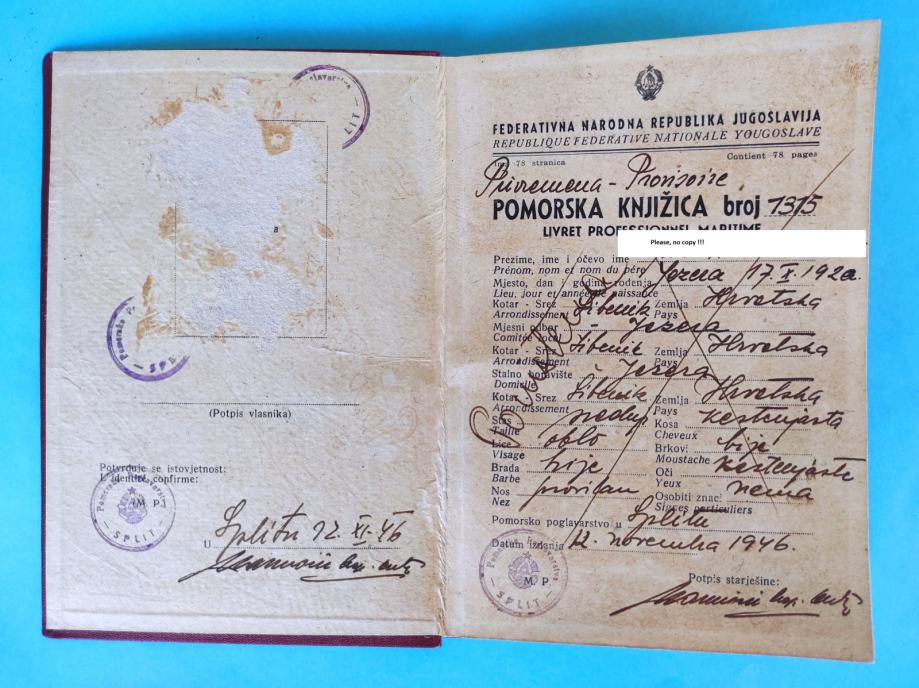 a
(Potpis vlasnika)
Potvrđuje se istovjetnost:
L'identité confirme:
(M. P.)
SPLIT
U Splitu 12. XI. 46
FEDERATIVNA NARODNA REPUBLIKA JUGOSLAVIJA
REPUBLIQUE FEDERATIVE NATIONALE YOUGOSLAVE
78 stranica Contient 78 pages
Privremena - Provisoire
POMORSKA KNJIŽICA broj 1315
LIVRET PROFESSIONNEL MARITIME
Please, no copy !!!
Prezime, ime i očevo ime
Prénom, nom et nom du père
Mjesto, dan i godina rođenja Jezera 17. X. 1920.
Lieu, jour et année de naissance
Kotar - Srez Šibenik Zemlja Hrvatska
Arrondissement Pays
Mjesni odbor - Jezera
Comitée local
Kotar - Srez Šibenik Zemlja Hrvatska
Arrondissement Pays
Stalno boravište - Jezera
Domicile
Kotar - Srez Šibenik Zemlja Hrvatska
Arrondissement Pays
Stas Kosa kestenjasta
Taille Cheveux
Lice oblo Brkovi brije
Visage Moustache
Brada brije Oči kestenjaste
Barbe Yeux
Nos pravilan Osobiti znac: nema
Nez Signes particuliers
Pomorsko poglavarstvo u Splitu
Datum izdanja 12. novembra 1946.
M. P.
SPLIT
Potpis starješine: